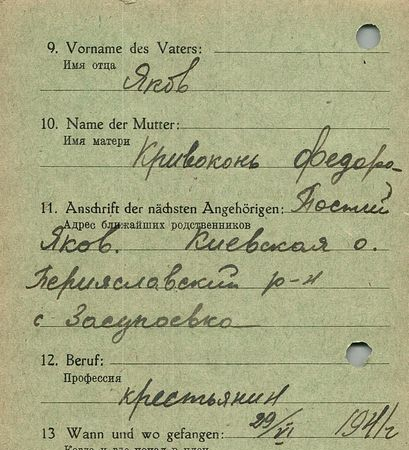 9. Vorname des Vaters:
Имя отца
Яков
10. Name der Mutter:
Имя матери
Кривоконь Федора
11. Anschrift der nächsten Angehörigen: Постий
Адрес ближайших родственников
Яков. Киевская о.
Перияславский р-н
с Засупоевка
12. Beruf:
Профессия
крестьянин
13 Wann und wo gefangen: 29/VI 1941г
Когда и где попал в плен